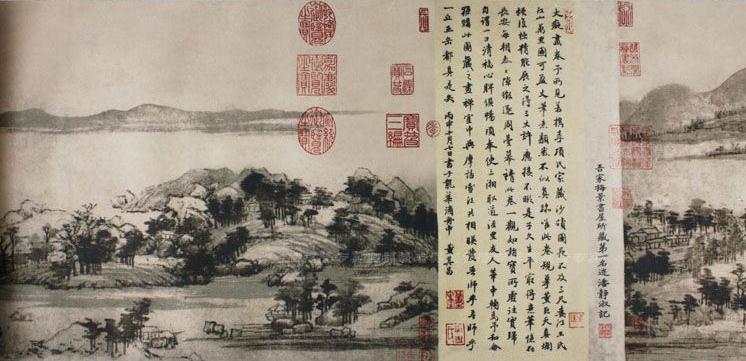 吾家梅景書屋所藏第一名迹潘靜淑記
大癡畫卷予所見若檇李項氏家藏沙磧圖長不及三尺婁江王氏
江山萬里圖可盈丈筆意頹然不似真跡唯此卷規摹董巨天真爛
漫復極精能展之得三丈許應接不暇是子久生平最得意筆憶在
長安每朝參之隙徵逐周臺幕請此卷一觀如詣寶所虛往實歸
自謂一日清福心脾俱暢頃奉使三湘取道涇里友人華中翰為予和會
獲購此圖藏之畫禪室中與摩詰雪江共相映發吾師乎吾師乎
一丘五岳都具是矣丙申十月七日書于龍華浦舟中董其昌
寶笈三編